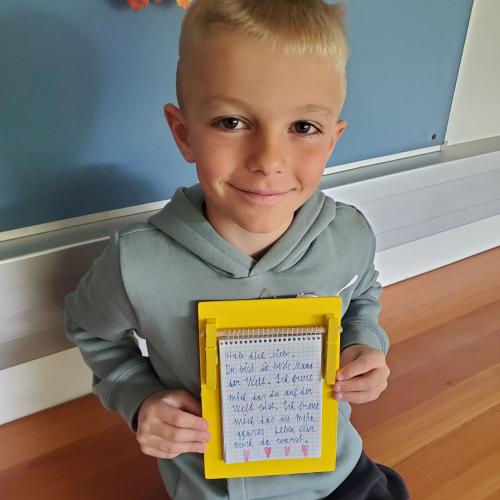 Hab dich lieb.
Du bist die beste Mama
der Welt. Ich freue
mich das du auf der
Welt bist. Ich freue
mich das du mein
ganzes Leben für
mich da warst.